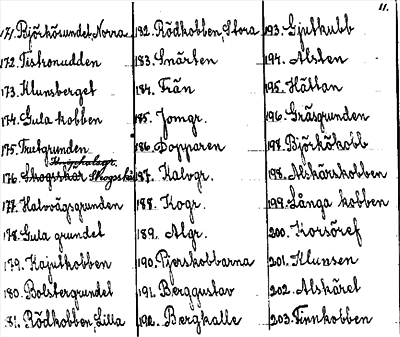 11.
171. Björkörundet, Norra
172. Tiskonudden
173. Klunsberget
174. Gula kobben
175. Trutgrunden
176. Skogsskär Skogsskä
177. Halvvägsgrunden
178. Gula grundet
179. Kajutkobben
180. Bolstergrundet
181. Rödkobben, Lilla
182. Rödkobben, Stora
183. Smårten
184. Trån
185. Jomgr.
186. Dopparen
187. Kalvgr.
188. Kogr.
189. Algr.
190. Pjerskobbarna
191. Berggustav
192. Bergkalle
193. Gjutkubb
194. Alsten
195. Hättan
196. Gräsgrunden
197. Björkökobb
198. Alskärskobben
199. Långa kobben
200. Korsöref
201. Klunsen
202. Alskäret
203. Finnkobben